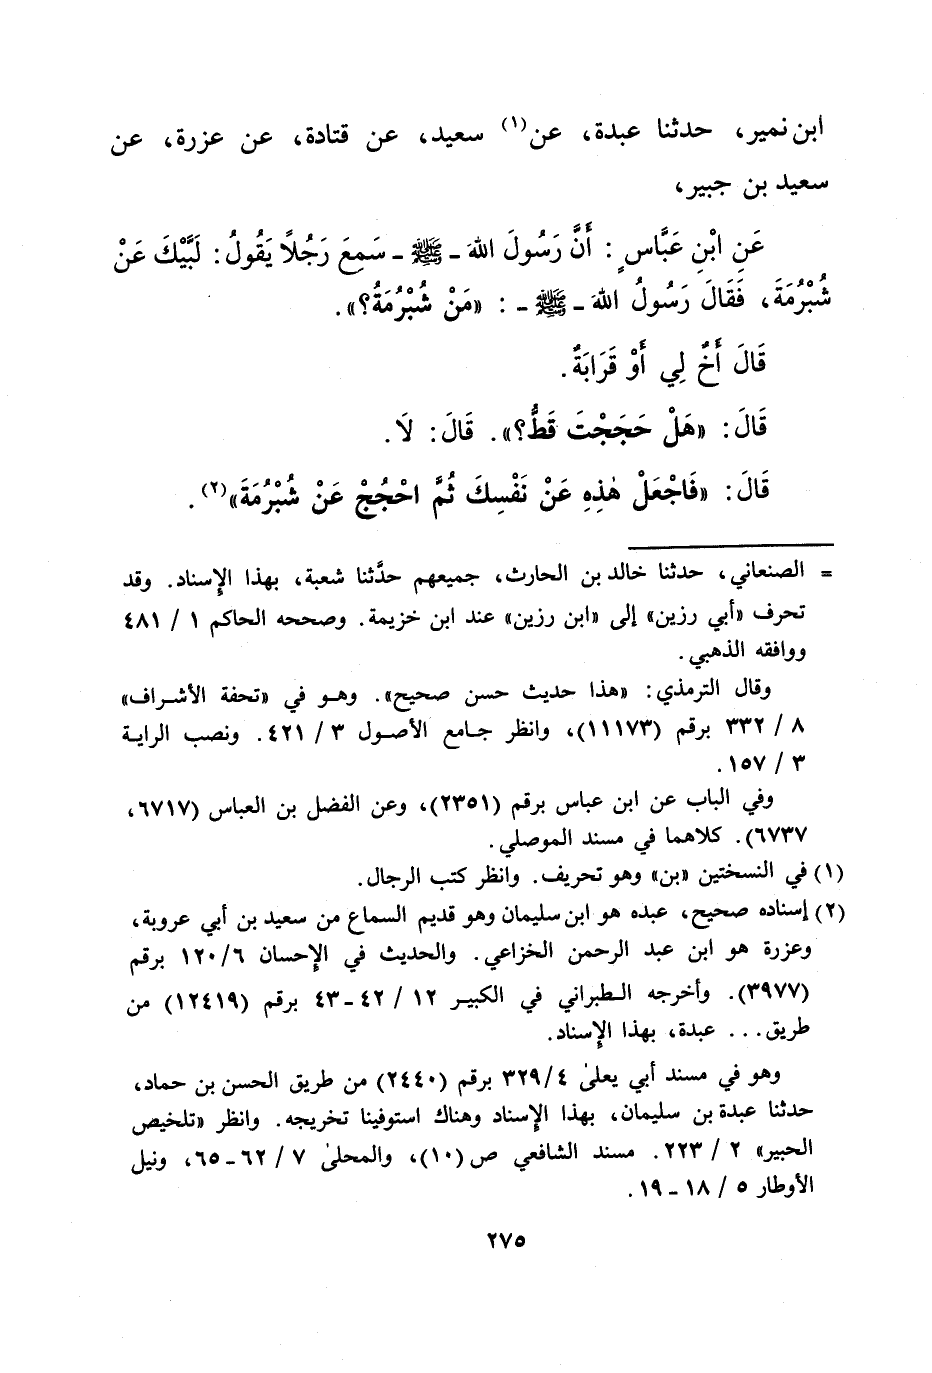 ابن نمير، حدثنا عبدة، عن(١) سعيد، عن قتادة، عن عزرة، عن
سعيد بن جبير،
عَنِ ابْنِ عَبَّاسٍ : أَنَّ رَسُولَ اللهَ ـ ﷺ ـ سَمِعَ رَجُلاً يَقُولُ: لَبَّيْكَ عَنْ
شُبْرُمَةَ، فَقَالَ رَسُولُ اللهَ ـ ﷺ ـ : «مَنْ شُبْرُمَةُ؟».
قَالَ أَخٌ لِي أَوْ قَرَابَةٌ.
قَالَ: «هَلْ حَجَجْتَ قَطُّ؟». قَالَ: لَا.
قَالَ: «فَاجْعَلْ هٰذِهِ عَنْ نَفْسِكَ ثُمَّ احْجُجْ عَنْ شُبْرُمَةَ»(٢).
= الصنعاني، حدثنا خالد بن الحارث، جميعهم حدَّثنا شعبة، بهذا الإسناد. وقد
تحرف «أبي رزين» إلى «ابن رزين» عند ابن خزيمة. وصححه الحاكم ١ / ٤٨١
ووافقه الذهبي.
وقال الترمذي: «هذا حديث حسن صحيح». وهو في «تحفة الأشراف»
٨ / ٣٣٢ برقم (١١١٧٣)، وانظر جامع الأصول ٣ / ٤٢١. ونصب الراية
٣ / ١٥٧.
وفي الباب عن ابن عباس برقم (٢٣٥١)، وعن الفضل بن العباس (٦٧١٧،
٦٧٣٧). كلاهما في مسند الموصلي.
(١) في النسختين «بن» وهو تحريف. وانظر كتب الرجال.
(٢) إسناده صحيح، عبده هو ابن سليمان وهو قديم السماع من سعيد بن أبي عروبة،
وعزرة هو ابن عبد الرحمن الخزاعي. والحديث في الإحسان ٦/ ١٢٠ برقم
(٣٩٧٧). وأخرجه الطبراني في الكبير ١٢ / ٤٢ - ٤٣ برقم (١٢٤١٩) من
طريق... عبدة، بهذا الإسناد.
وهو في مسند أبي يعلىٰ ٤/ ٣٢٩ برقم (٢٤٤٠) من طريق الحسن بن حماد،
حدثنا عبدة بن سليمان، بهذا الإسناد وهناك استوفينا تخريجه. وانظر «تلخيص
الحبير» ٢ / ٢٢٣. مسند الشافعي ص (١٠)، والمحلىٰ ٧ / ٦٢ - ٦٥، ونيل
الأوطار ٥ / ١٨ - ١٩.
٢٧٥